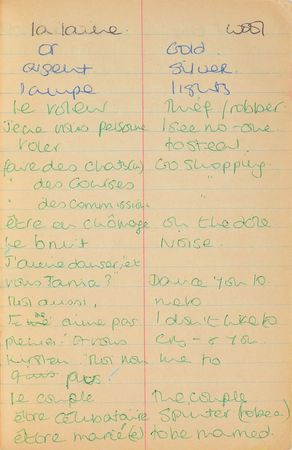 la laine wool
or Gold
argent Silver
lampe lights
Le voleur Thief/robber
Je ne vous personne I see no-one
voler to steal
faire des chats(n) Go shopping
" des courses
" des commissions
être en chômage on the dole
Le bruit NOISE.
J'aime danser, et Dance you to
vous Tania?"
Moi aussi. me to
Je aime pas I don't like to
pleurer et vous cry - o you
Kirsten "Moi non me to
plus!
le couple The couple
être célibataire Spinter (to be a)
être marié(e) to be married.